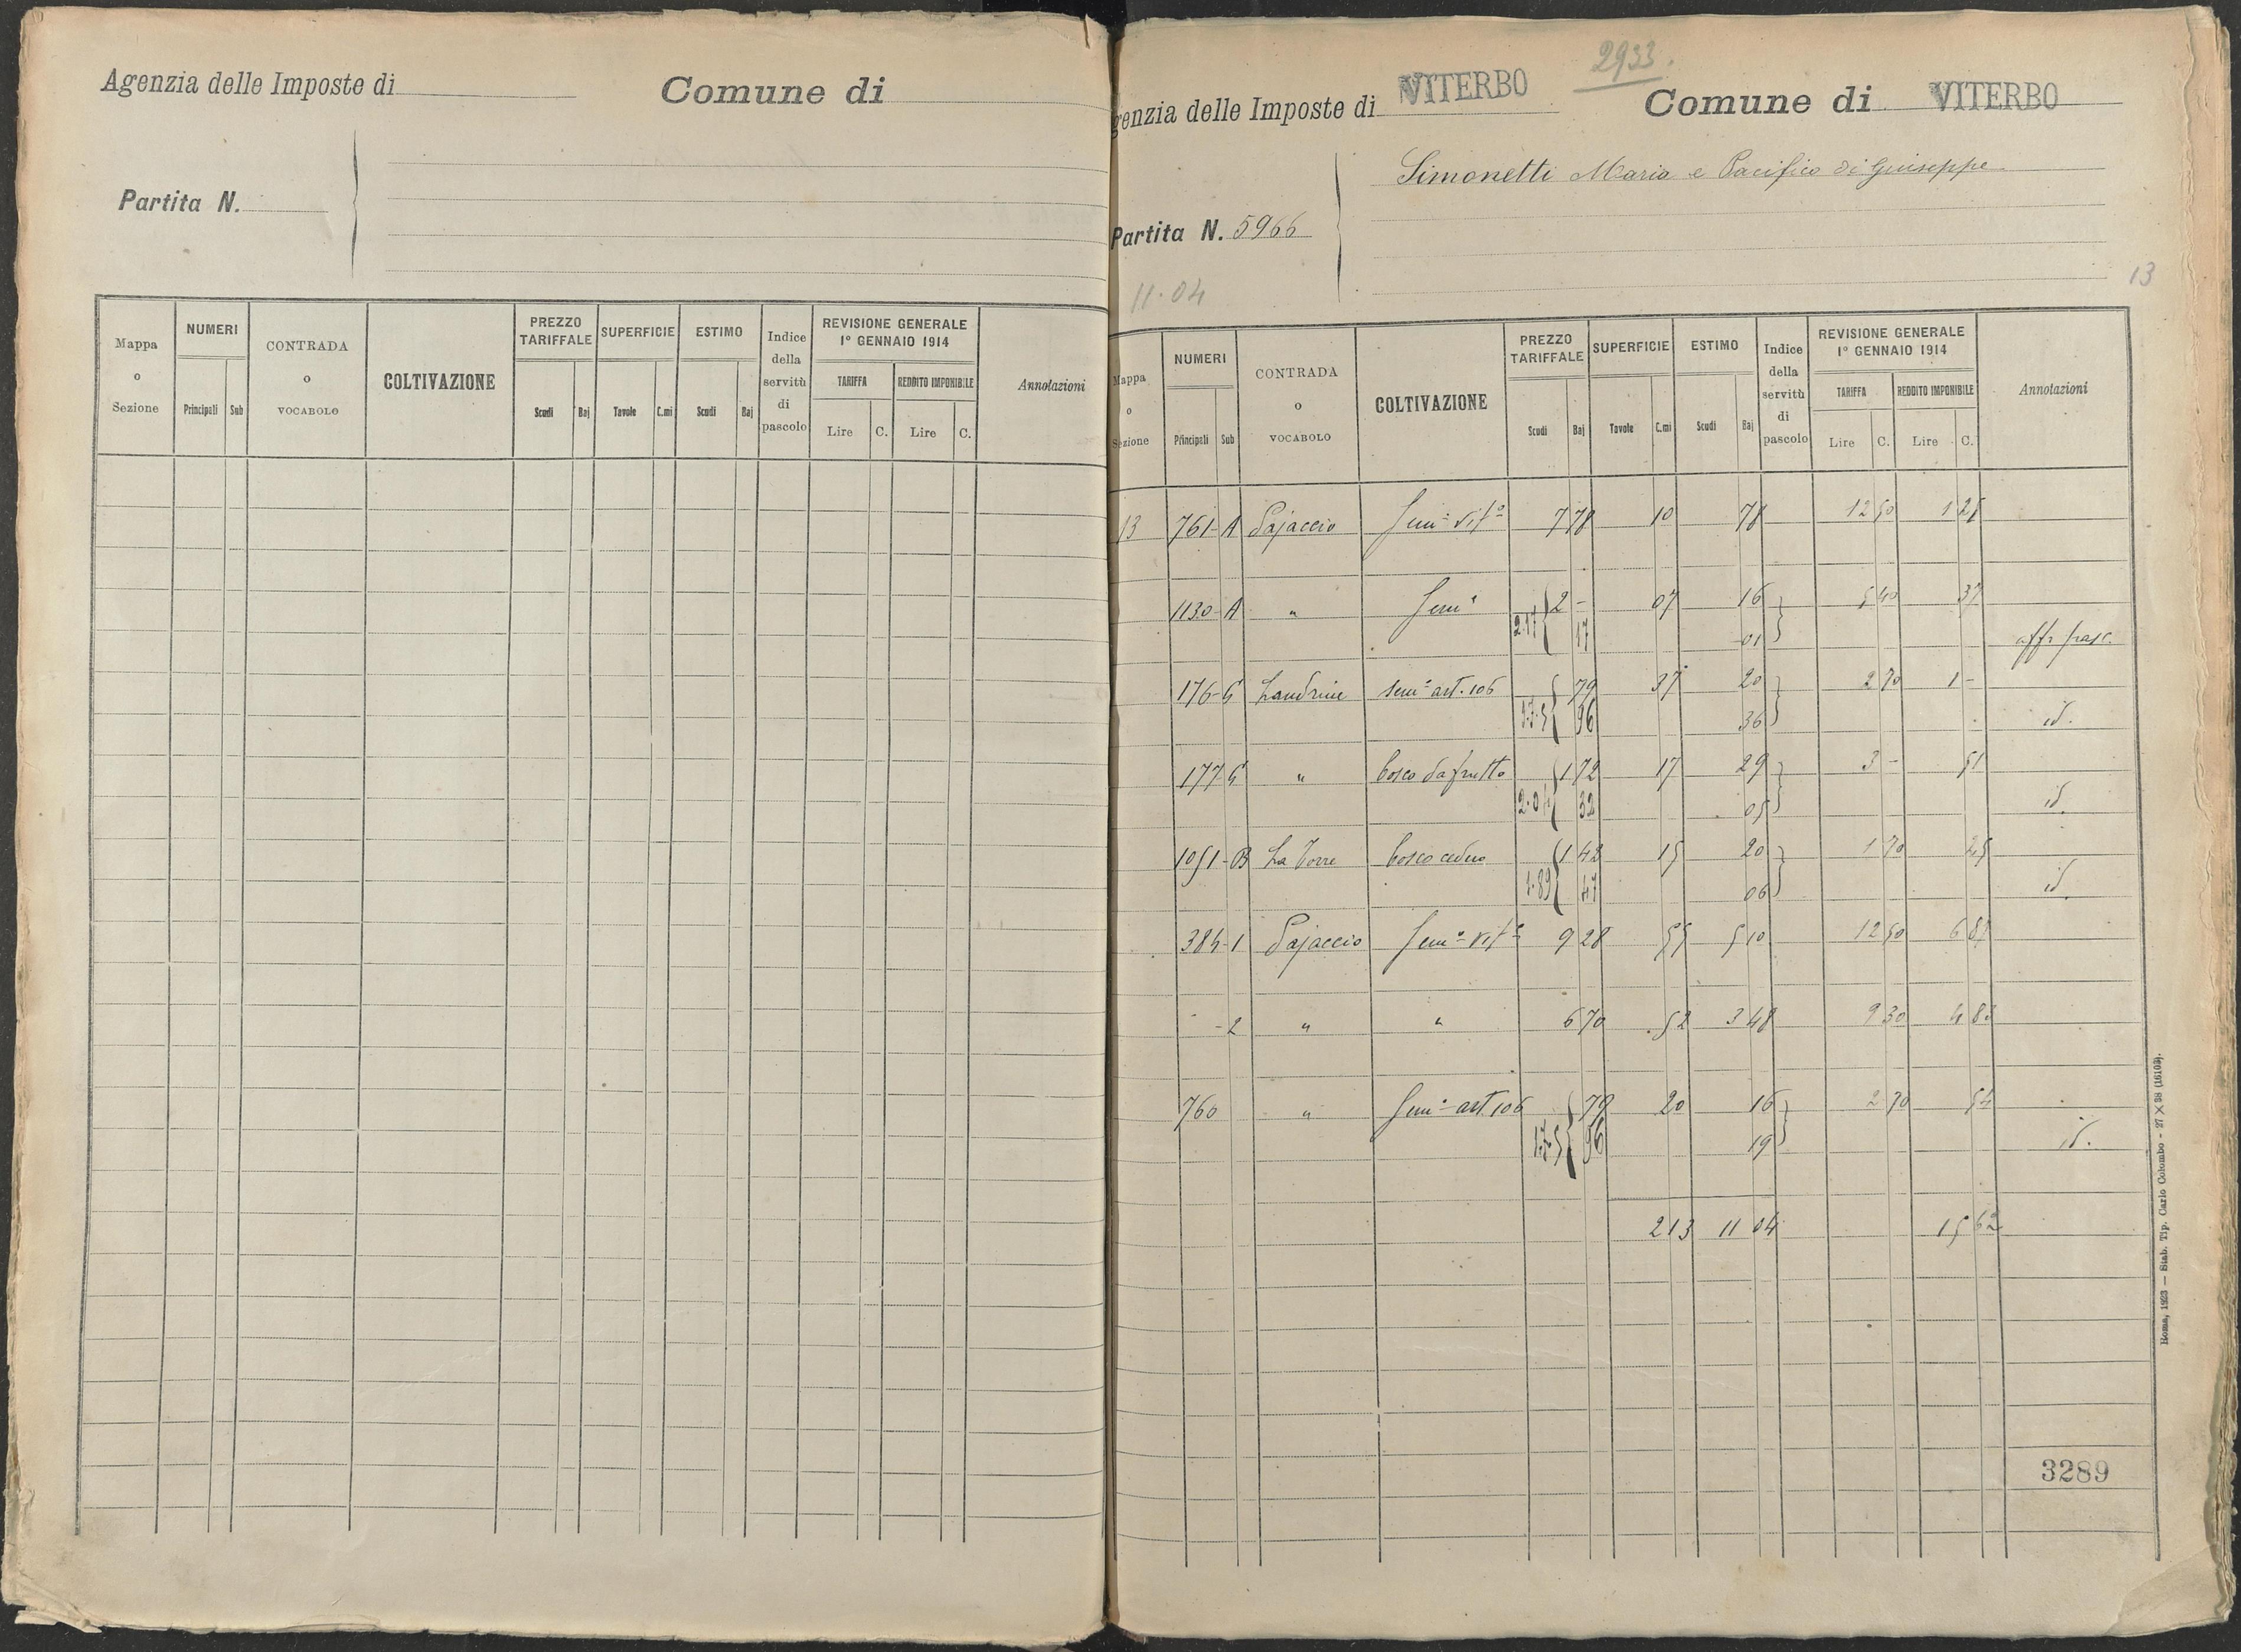 Agenzia delle Imposte di
Comune di
Partita N.
Mappa o Sezione
NUMERI
Principali Sub
CONTRADA o VOCABOLO
COLTIVAZIONE
PREZZO TARIFFALE
Scudi Baj
SUPERFICIE
Tavole C.mi
ESTIMO
Scudi Baj
Indice della servitù di pascolo
REVISIONE GENERALE
1° GENNAIO 1914
TARIFFA
Lire C.
REDDITO IMPONIBILE
Lire C.
Annotazioni
2933.
genzia delle Imposte di VITERBO
Comune di VITERBO
Simonetti Maria e Pacifico di Giuseppe
Partita N. 5966
11.04
13
Mappa o Sezione
NUMERI
Principali Sub
CONTRADA o VOCABOLO
COLTIVAZIONE
PREZZO TARIFFALE
Scudi Baj
SUPERFICIE
Tavole C.mi
ESTIMO
Scudi Baj
Indice della servitù di pascolo
REVISIONE GENERALE
1° GENNAIO 1914
TARIFFA
Lire C.
REDDITO IMPONIBILE
Lire C.
Annotazioni
13 761-A Pajaccio Sem° vit° 7 78 10 78 12 50 1 25
1130-A " Sem° 2 - 07 16 5 40 37
2.17 17 01 aff. pasc.
176- Landrine sem° art. 106 79 37 20 2 70 1 -
1.75 96 36 id.
177- " bosco da frutto 1 72 17 29 3 - 51
2.04 32 05 id.
1051-B La Torre bosco ceduo 1 42 15 20 1 70 25
1.89 47 06 id.
384-1 Pajaccio Sem° vit° 9 28 55 5 10 12 50 6 87
-2 " " 6 70 52 3 48 9 30 4 83
760 " Sem° art 106 79 20 16 2 70 54
1.75 96 19 id.
213 11 04 15 62
3289
Roma, 1923 — Stab. Tip. Carlo Colombo - 27 X 38 (16103).